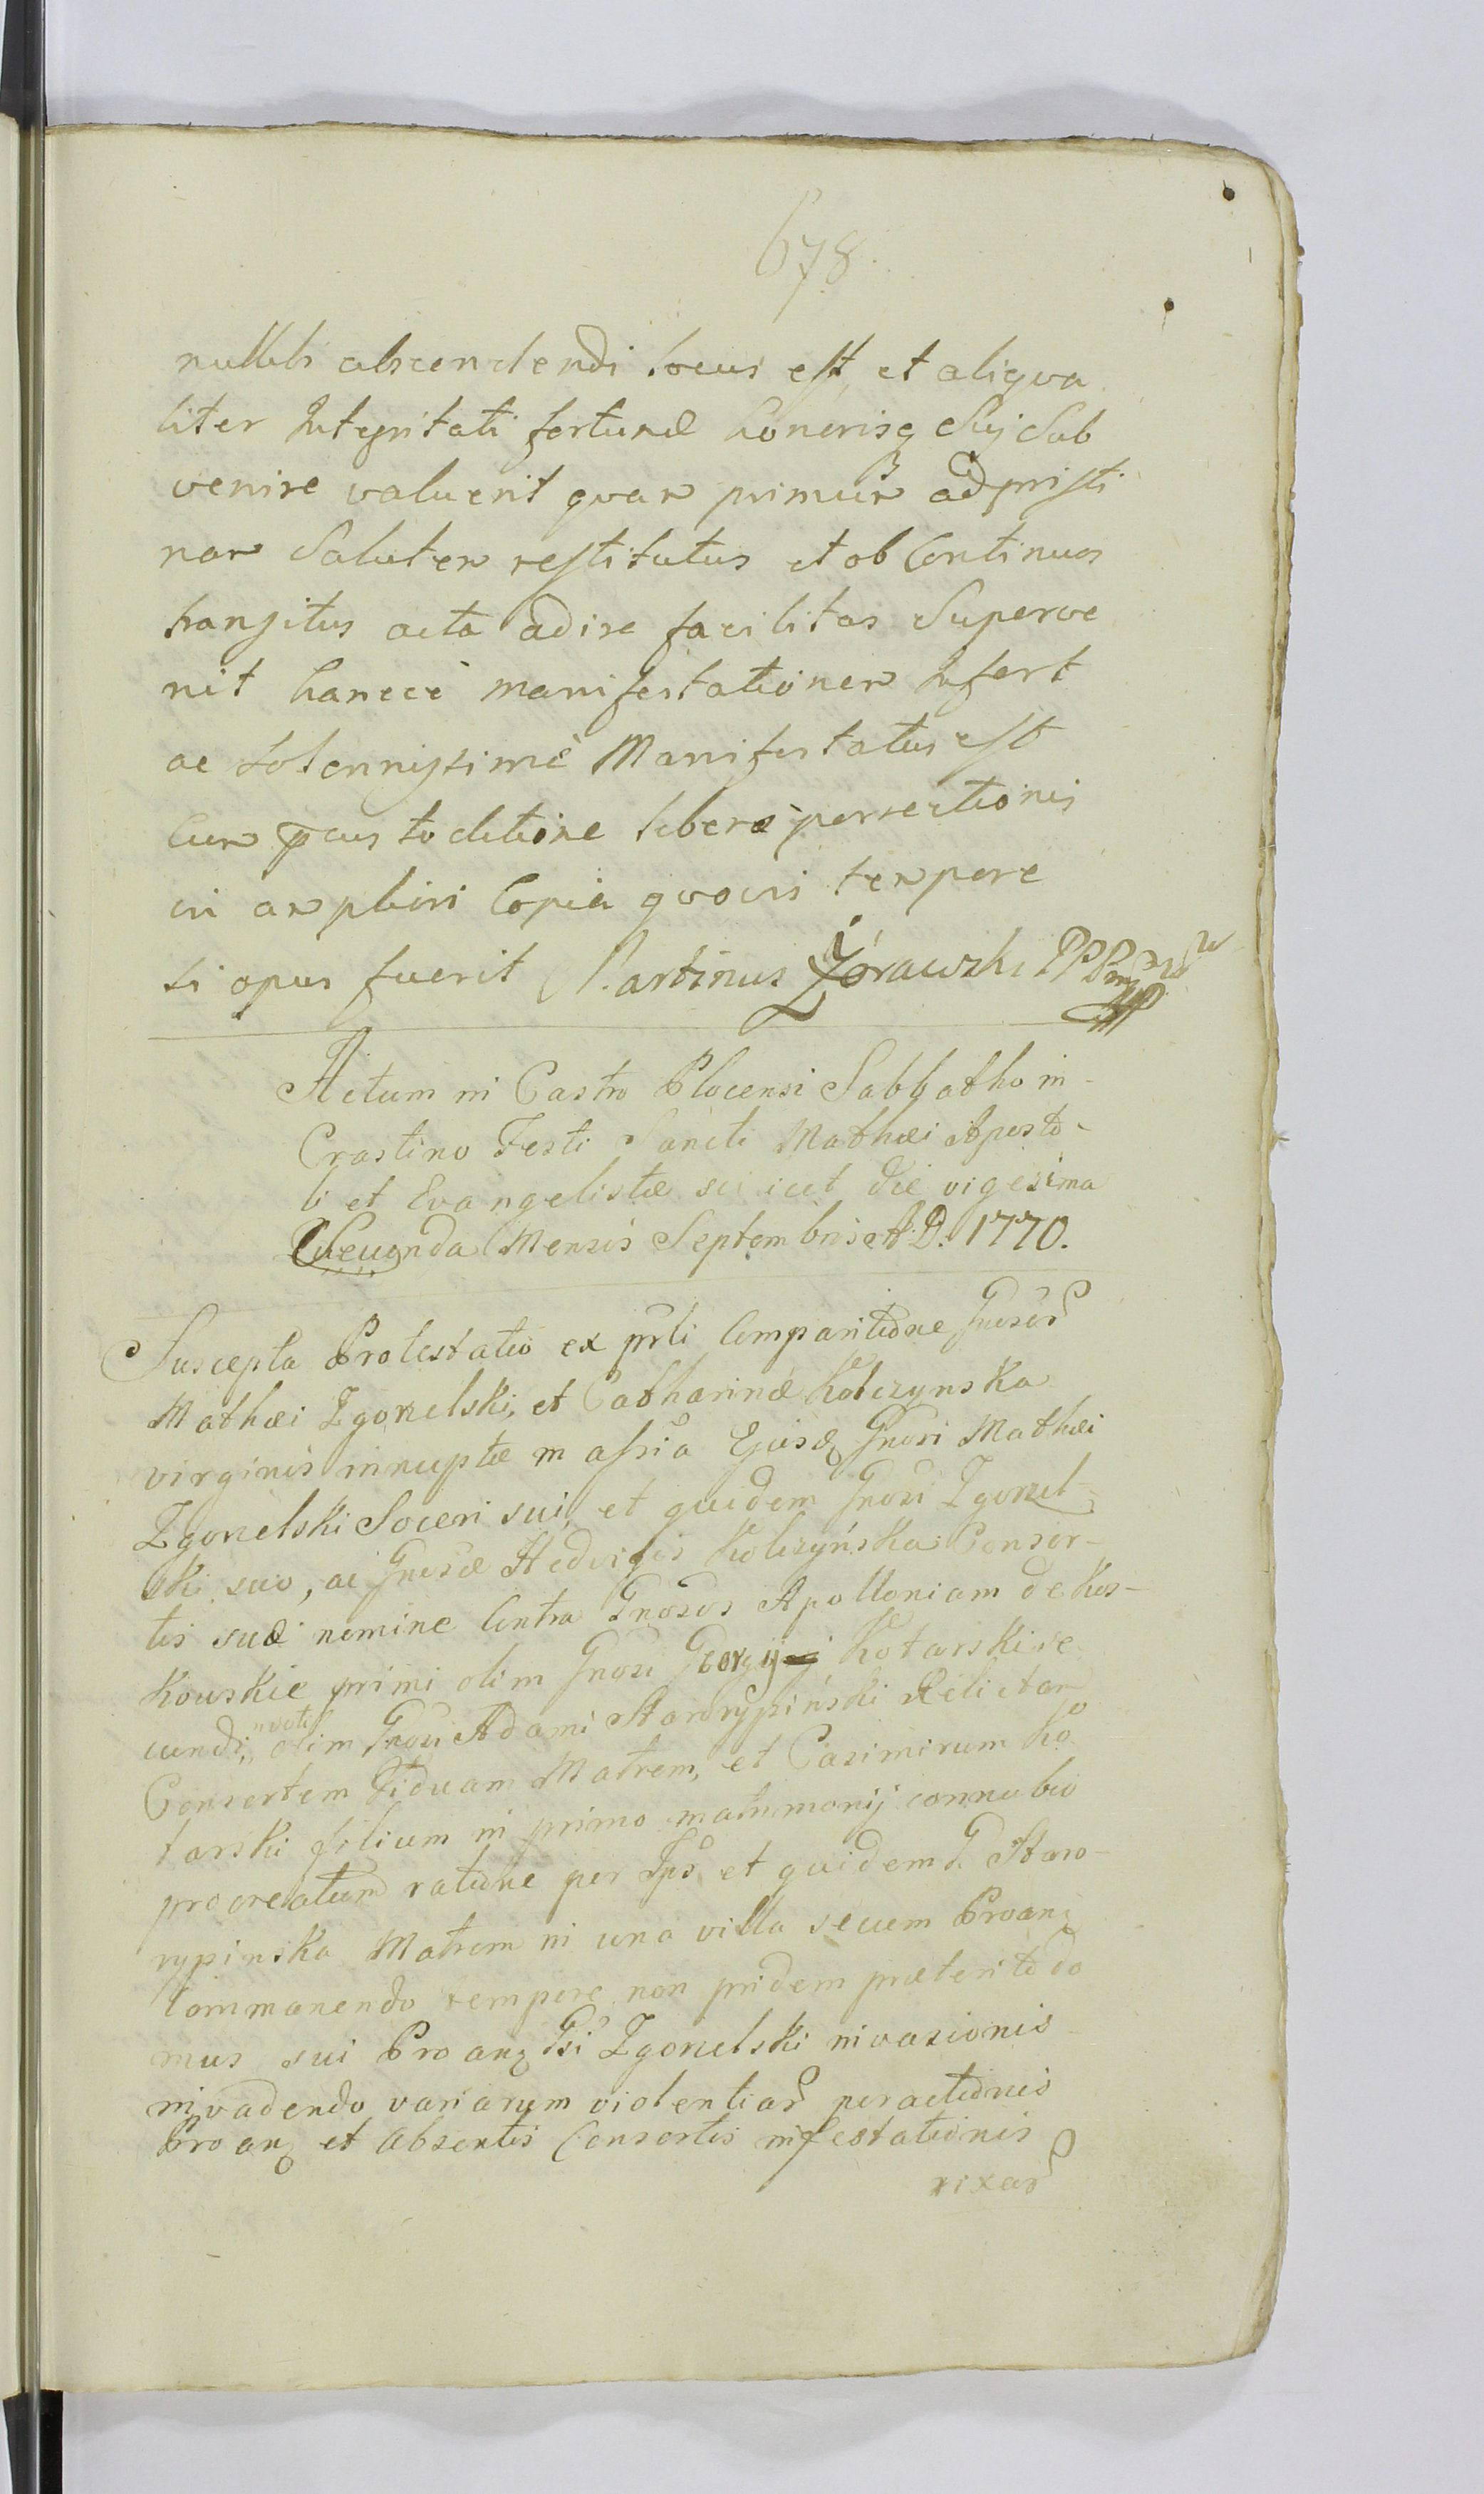 678.
nullibi abscendendi locus est, et aliqva
liter Integritati fortunæ honorisq Suj Sub
venire valuerit qvam primum ad pristi
nam Salutem restitutus et ob Continuos
transitus acta adire facilitas Superve
nit hancce manifestationem Infert
ac solennissimè Manifestatus est
Cum custoditione liberæ
in ampliori Copia qvovis tempore
si opus fuerit Martinus Żórawski
Actum in Castro Plocensi Sabbatho in
Crastino Festi Sancti Mathæi Aposto-
li et Evangelistæ scilicet die vigesima
Secunda Mensis Septembris A. D. 1770.
Suscepta Protestatio ex prti Comparitione Gnosor
Mathæi Zgorzelski, et Catharinæ Kolczynska
virginis innuptæ in assia Ejusd Gnosi Mathæi
Zgorzelski Soceri sui, et quidem Gnosi Zgorzel-
ski suo, ac Gnosæ Hedvigis Kolczyńska Consor-
tis suæ nomine Contra Gnosos Apolloniam de Kos-
kowskie primi olim Gnosi Georgij Kotarski se
cundi, voti olim Gnosi Adami Starorypiński Relictam
Consortem Viduam Matrem, et Casimirum Ko
tarski filium in primo matrimonij connubio
procreatum ratione per Ips et quidem G. Staro-
rypinska Matrem in una villa secum Proan
Commanendo tempore non pridem præterito do
mus sui Proan Gsi Zgorzelski invasionis
invadendo variarum violentiar peractionis
Proan et absentis Consortis infestationis
rixar